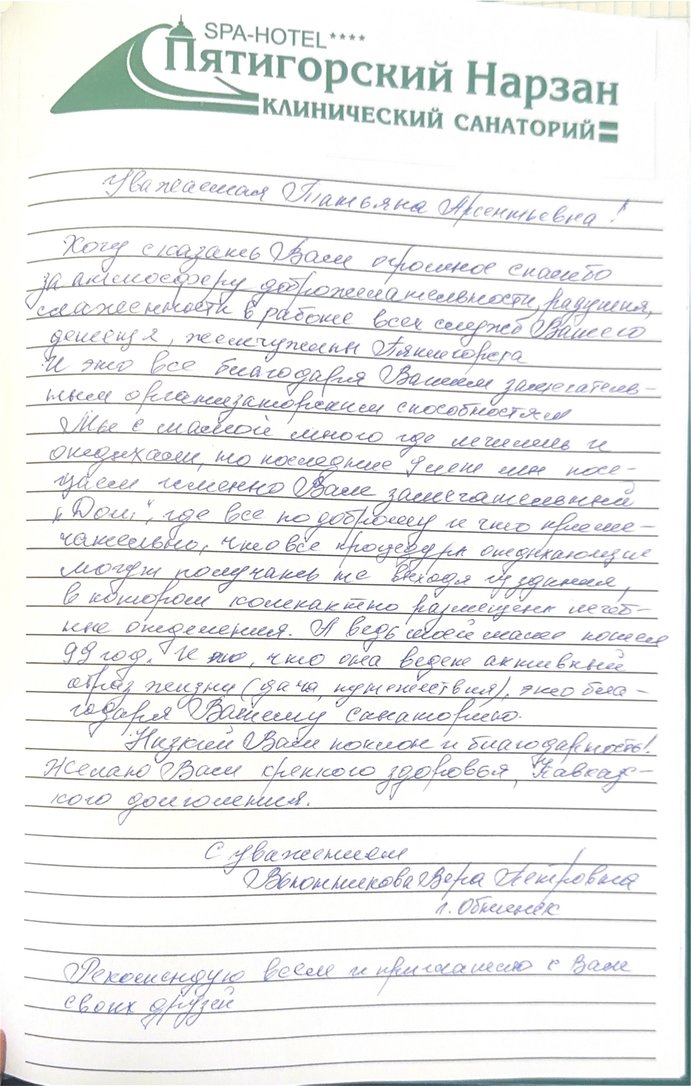 SPA-HOTEL****
Пятигорский Нарзан
КЛИНИЧЕСКИЙ САНАТОРИЙ
Уважаемая Татьяна Арсентьевна!
Хочу сказать Вам огромное спасибо
за атмосферу доброжелательности, радушия,
слаженности в работе всех служб Вашего
детища, жемчужины Пятигорска
И это все благодаря Вашим замечатель-
ным организаторским способностям
Мы с мамой много где лечились и
отдыхали, но последние 9 лет мы посе-
щаем именно Ваш замечательный
"Дом", где все по доброму и что приме-
чательно, что все процедуры отдыхающие
могут получать не выходя из здания,
в котором компактно размещены лечеб-
ные отделения. А ведь моей маме пошел
99 год. И то, что она ведет активный
образ жизни (дача, путешествия), это бла-
годаря Вашему санаторию.
Низкий Вам поклон и благодарность!
Желаю Вам крепкого здоровья, Кавказ-
кого долголетия.
С уважением
Вера Петровна
г. Обнинск
Рекомендую всем и приглашаю к Вам
своих друзей